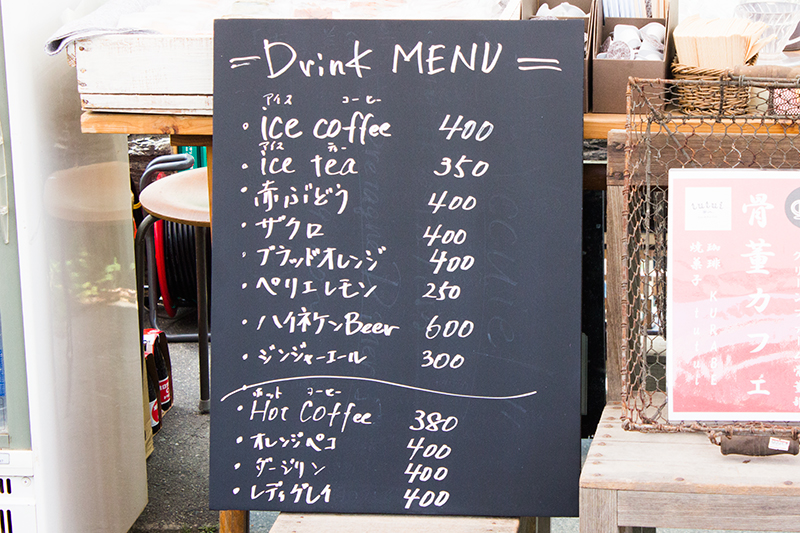 = Drink MENU =
アイス コーヒー
・ice coffee 400
アイス ティー
・ice tea 350
・赤ぶどう 400
・ザクロ 400
・ブラッドオレンジ 400
・ペリエレモン 250
・ハイネケンBeer 600
・ジンジャーエール 300
ホット コーヒー
・Hot Coffee 380
・オレンジペコ 400
・ダージリン 400
・レディグレイ 400
tutul
骨董カフェ
珈琲 KURABE
焼菓子 tutul